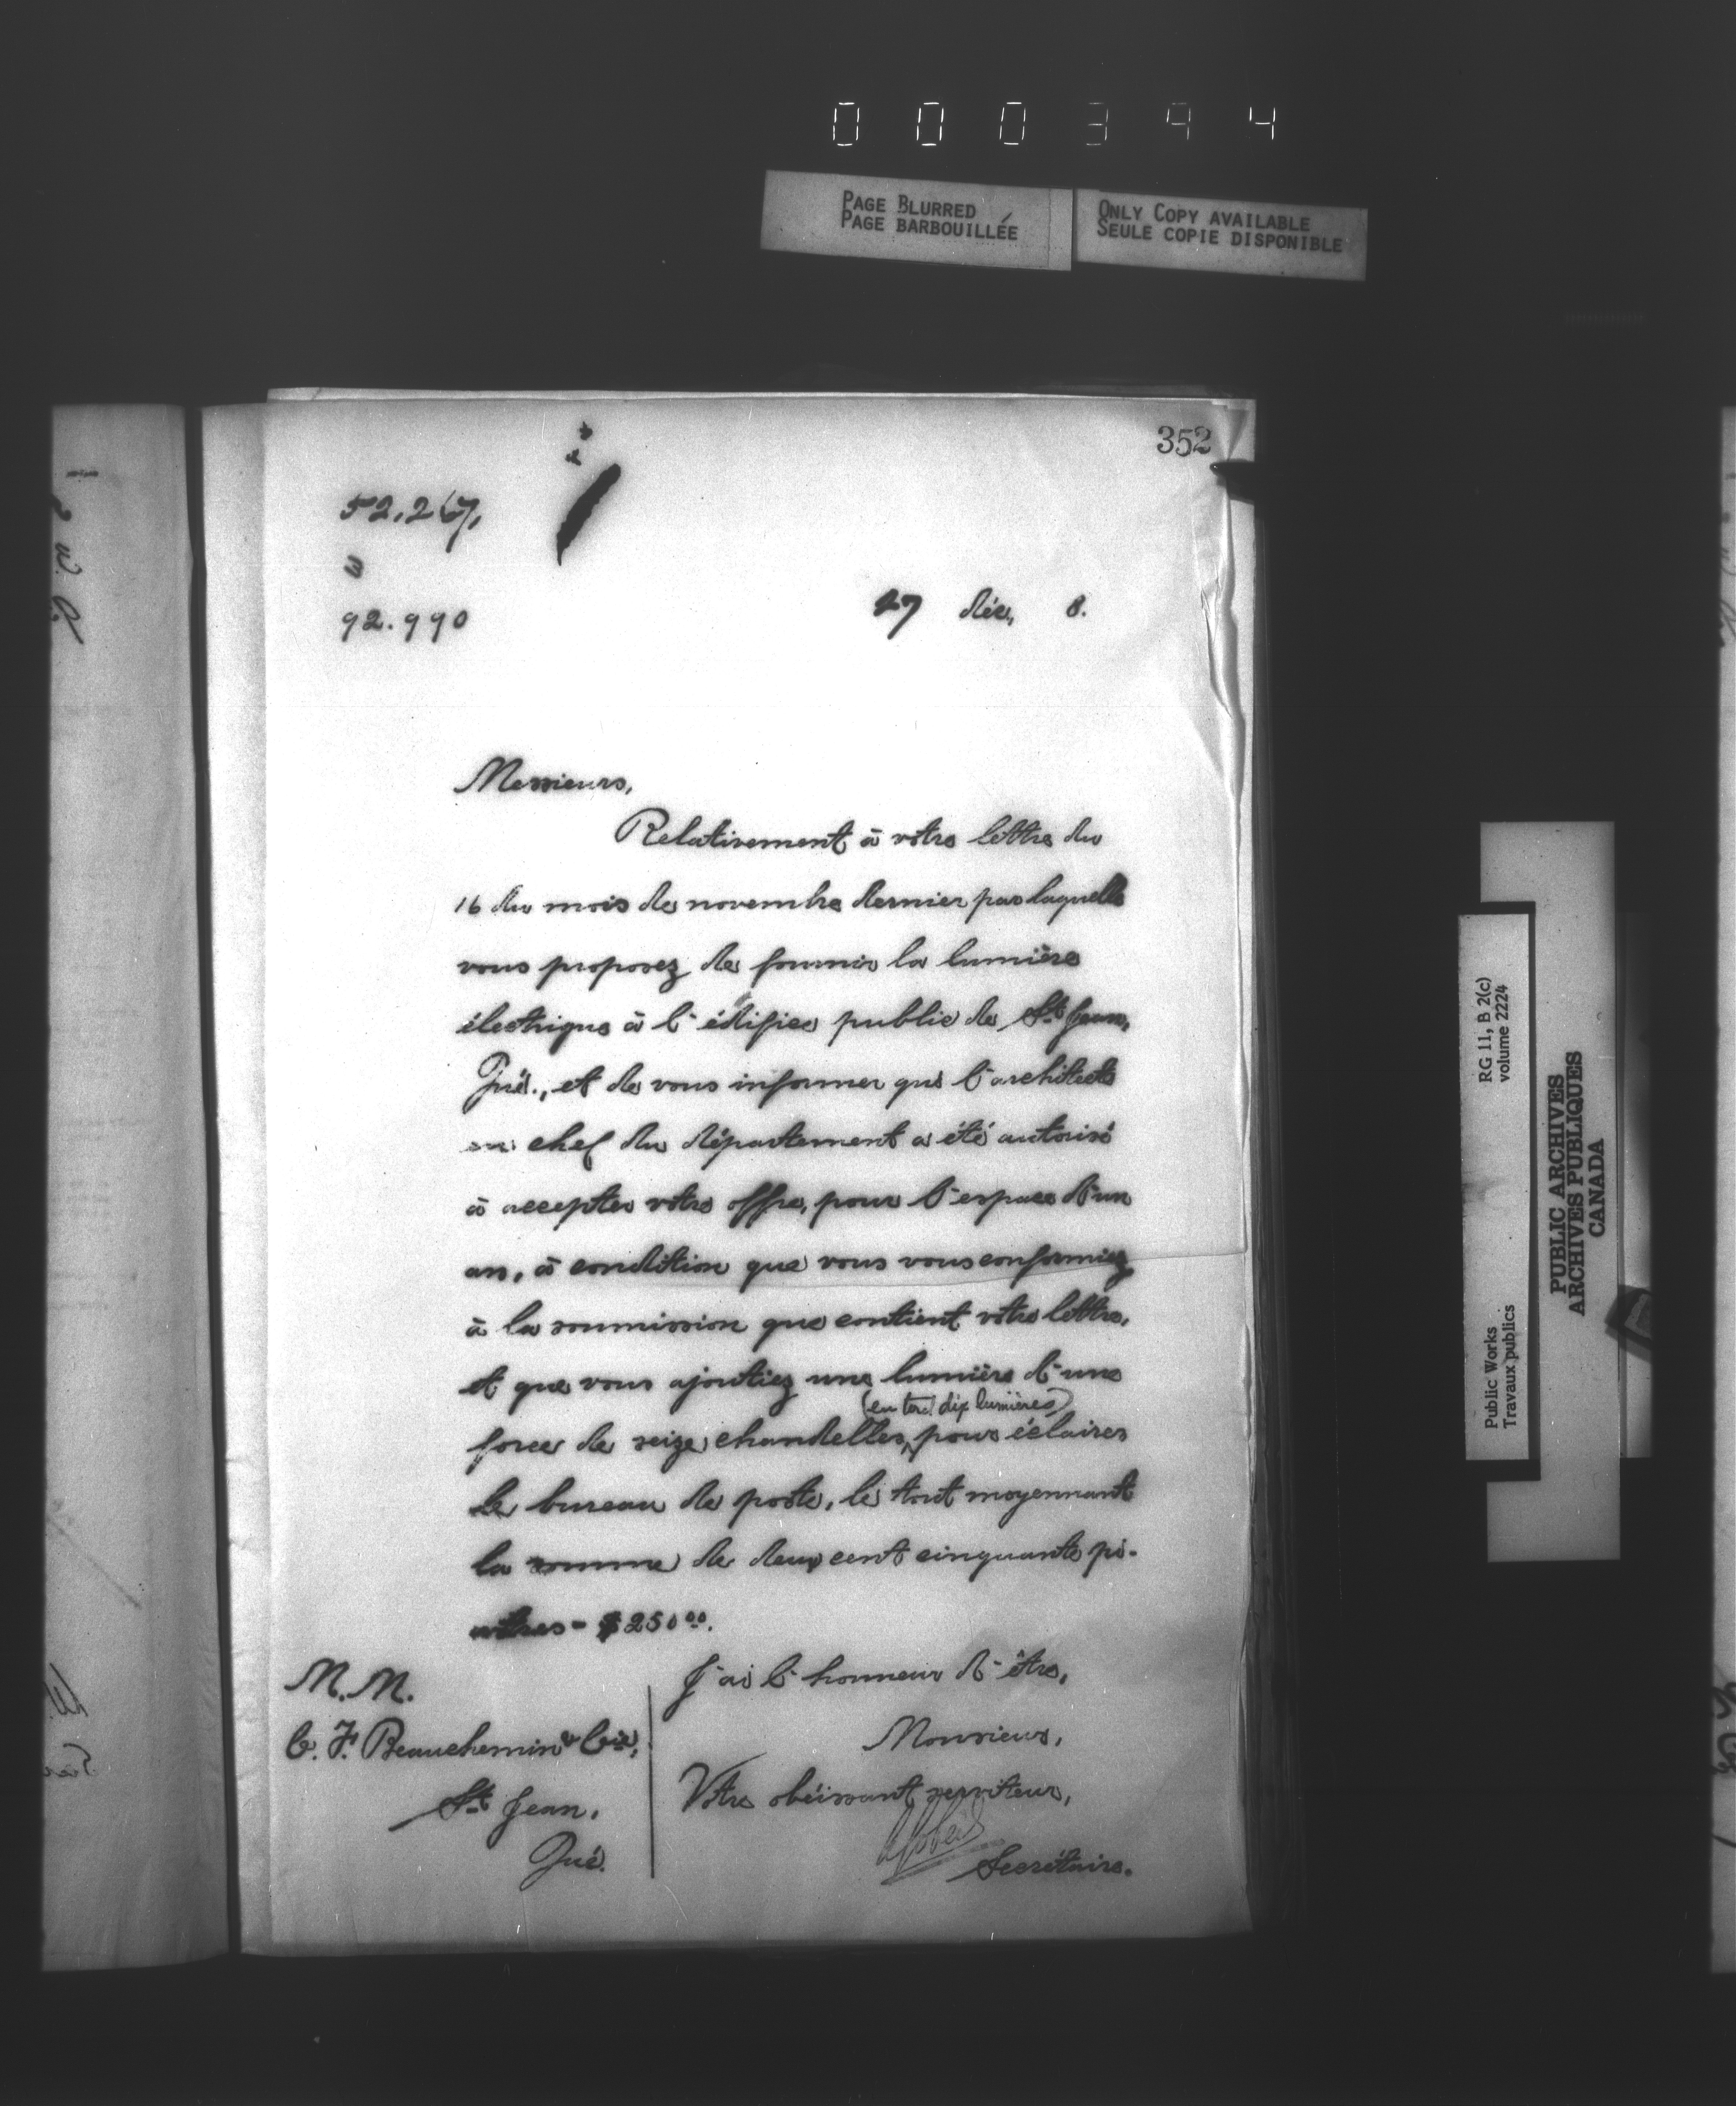 000394
PAGE BLURRED
PAGE BARBOUILLÉE
ONLY COPY AVAILABLE
SEULE COPIE DISPONIBLE
352
52.267,
3
92.990
27 déc, 8.
Messieurs,
Relativement à votre lettre du
16 du mois de novembre dernier par laquelle
vous proposez de fournir la lumière
électrique à l'édifice public de St Jean,
Qué., et de vous informer que l'architecte
en chef du département a été autorisé
à accepter votre offre, pour l'espace d'un
an, à condition que vous vous conformiez
à la soumission que contient votre lettre,
et que vous ajoutiez une lumière d'une
(en tout dix lumières)
force de seize chandelles, pour éclairer
le bureau de poste, le tout moyennant
la somme de deux cent cinquante pi-
astres - $250.00.
J'ai l'honneur d'être,
Monsieur,
Votre obéissant serviteur,
Secrétaire.
M.M.
C. F. Beauchemin & Cie,
St Jean,
Qué.
Public Works
Travaux publics
RG 11, B 2(c)
volume 2224
PUBLIC ARCHIVES
ARCHIVES PUBLIQUES
CANADA